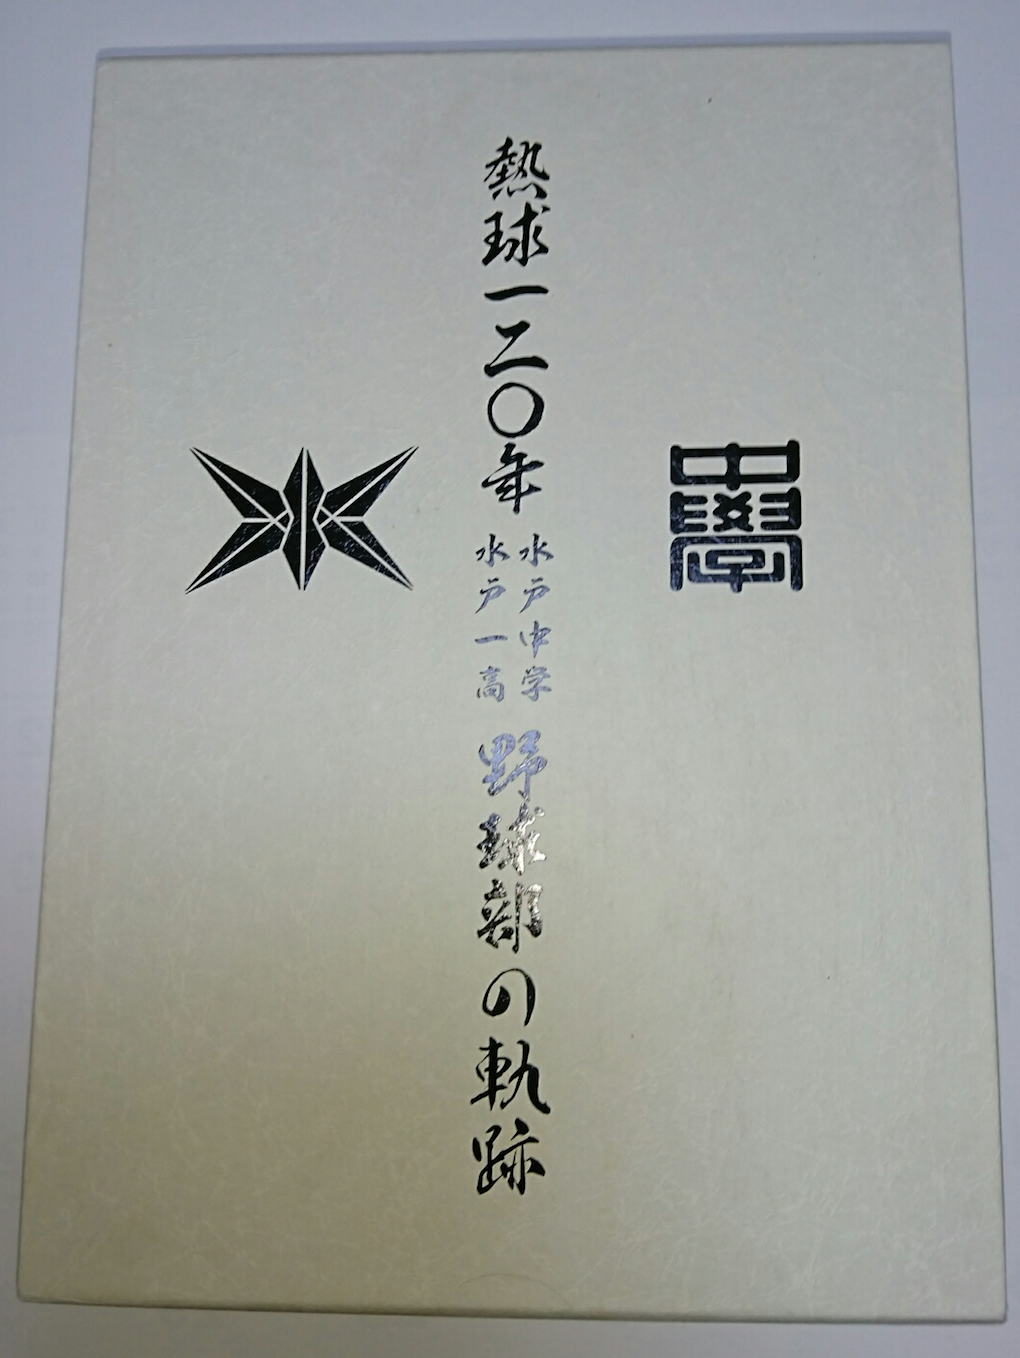 熱球一二〇年
水戸中学
水戸一高
野球部の軌跡
中學
水